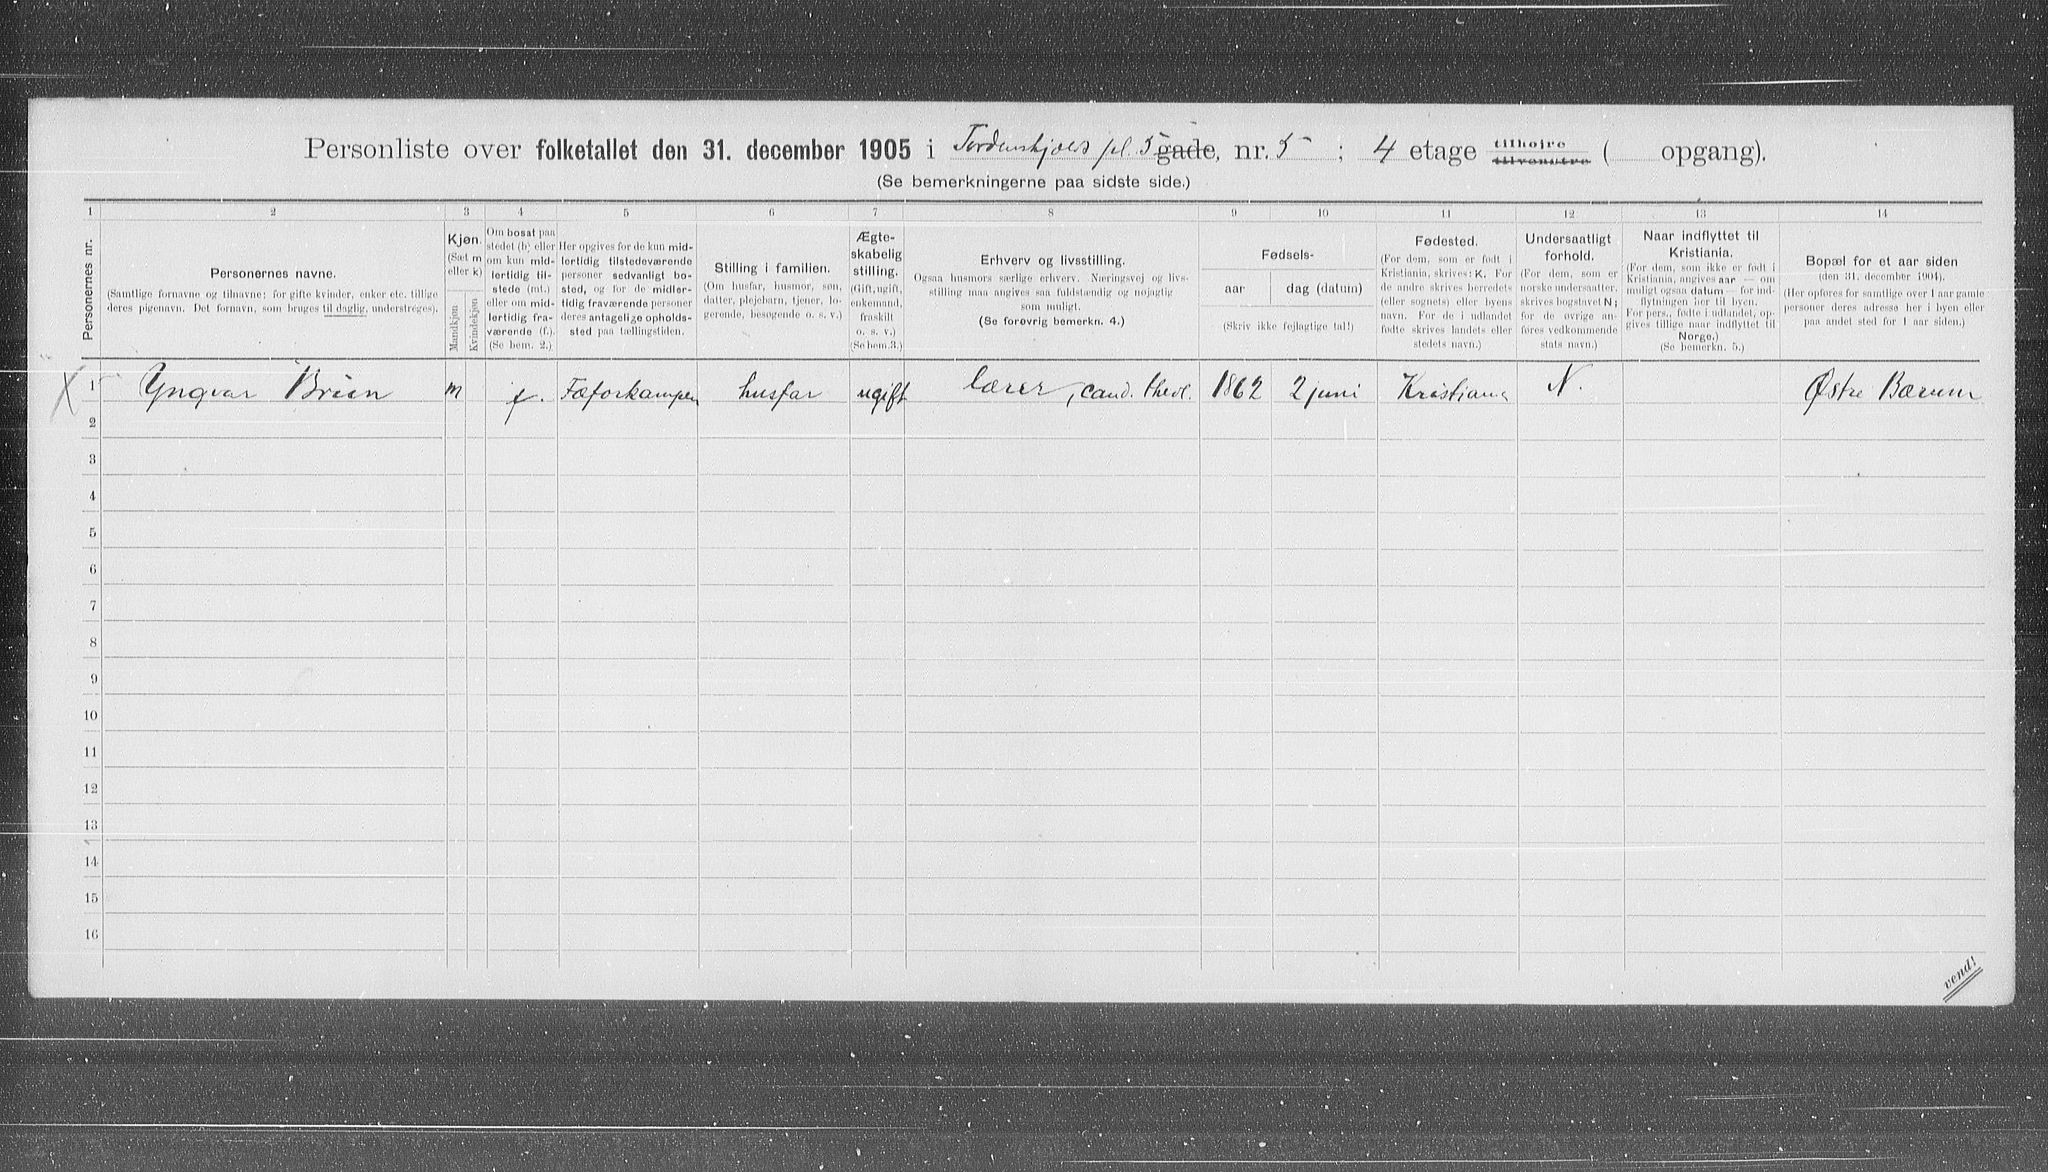 Personliste over folketallet den 31. december 1905 i Tordenskjolds pl. 5 gade, nr. 5 ; 4 etage tilhøjre tilvenstre ( opgang).
(Se bemerkningerne paa sidste side.)
1 2 3 4 5 6 7 8 9 10 11 12 13 14
Personernes nr.
Personernes navne.
(Samtlige fornavne og tilnavne; for gifte kvinder, enker etc. tillige
deres pigenavn. Det fornavn, som bruges til daglig, understreges).
Kjøn.
(Sæt m
eller k)
Mandkjøn
Kvindekjøn
Om bosat paa
stedet (b) eller
om kun mid-
lertidig til-
stede (mt.)
eller om mid-
lertidig fra-
værende (f.).
(Se bem. 2.)
Her opgives for de kun mid-
lertidig tilstedeværende
personer sedvanligt bo-
sted, og for de midler-
tidig fraværende personer
deres antagelige opholds-
sted paa tællingstiden.
Stilling i familien.
(Om husfar, husmor, søn,
datter, plejebarn, tjener, lo-
gerende, besøgende o. s. v.)
Ægte-
skabelig
stilling.
(Gift, ugift,
enkemand,
fraskilt
o. s. v.)
(Se bem. 3.)
Erhverv og livsstilling.
Ogsaa husmors særlige erhverv. Næringsvej og livs-
stilling maa angives saa fuldstændig og nøjagtig
som muligt.
(Se forøvrig bemerkn. 4.)
Fødsels-
aar
dag (datum)
(Skriv ikke fejlagtige tal!)
Fødested.
(For dem, som er født i
Kristiania, skrives: K. For
de andre skrives herredets
(eller sognets) eller byens
navn. For de i udlandet
fødte skrives landets eller
stedets navn.)
Undersaatligt
forhold.
(For dem, som er
norske undersaatter,
skrives bogstavet N;
for de øvrige an-
føres vedkommende
stats navn.)
Naar indflyttet til
Kristiania.
(For dem, som ikke er født i
Kristiania, angives aar — om
muligt ogsaa datum — for ind-
flytningen her til byen.
For pers., fødte i udlandet, op-
gives tillige naar indflyttet til
Norge.)
(Se bemerkn. 5.)
Bopæl for et aar siden
(den 31. december 1904).
(Her opføres for samtlige over 1 aar gamle
personer deres adresse her i byen eller
paa andet sted for 1 aar siden.)
1 Yngvar Brun m f. Fæforkampen husfar ugift lærer, cand. theol. 1862 2 juni Kristiania N. Østre Bærum
2
3
4
5
6
7
8
9
10
11
12
13
14
15
16
vend!